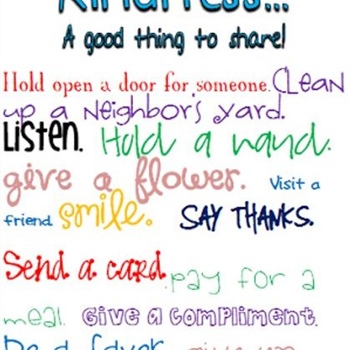 Kindness...
A good thing to share!
Hold open a door for someone. Clean
up a neighbor's yard.
Listen. Hold a hand.
give a flower. Visit a
friend. smile. SAY THANKS.
Send a card. pay for a
meal. Give a compliment.
Do a favor.